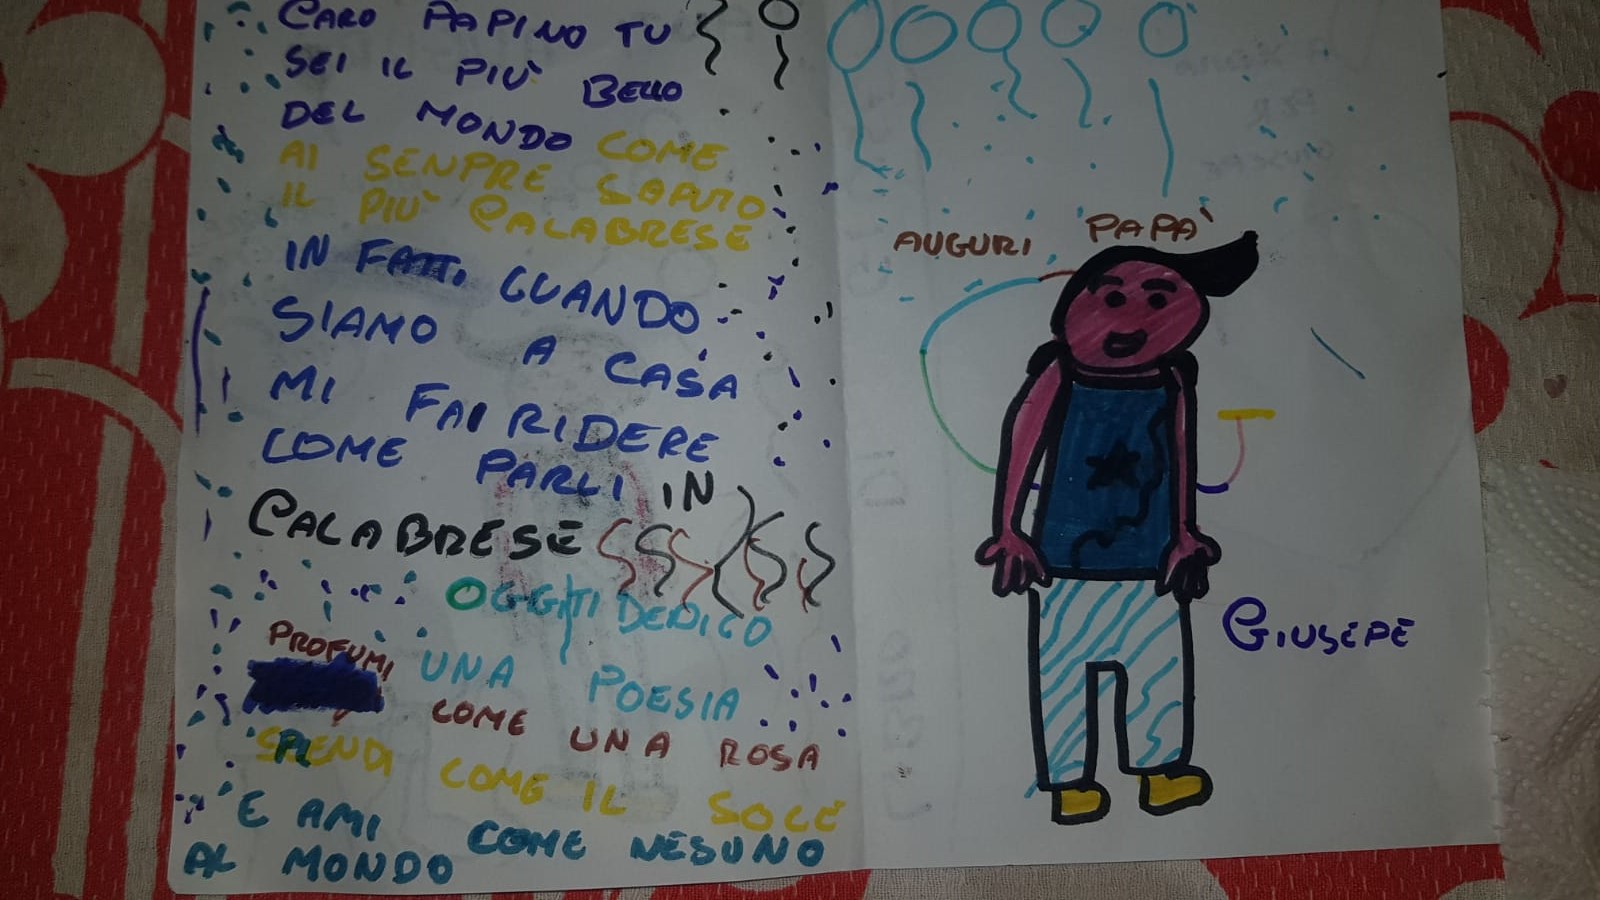 CARO PAPINO TU
SEI IL PIÙ BELLO
DEL MONDO COME
AI SENPRE SAPUTO
IL PIÙ CALABRESE
IN FATTI QUANDO
SIAMO A CASA
MI FAI RIDERE
COME PARLI IN
CALABRESE
OGGI TI DEDICO
UNA POESIA
PROFUMI COME UNA ROSA
SPLENDI COME IL SOLE
E AMI COME NESUNO
AL MONDO
AUGURI PAPÀ
GIUSEPE